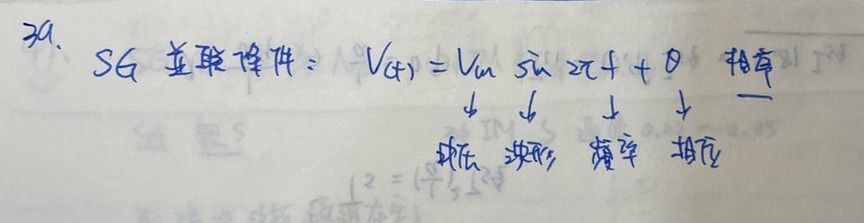 39.
SG 並联條件: V(t) = Vm sin 2πf + θ 相序
↓ ↓ ↓ ↓
电压 波形 頻率 相位